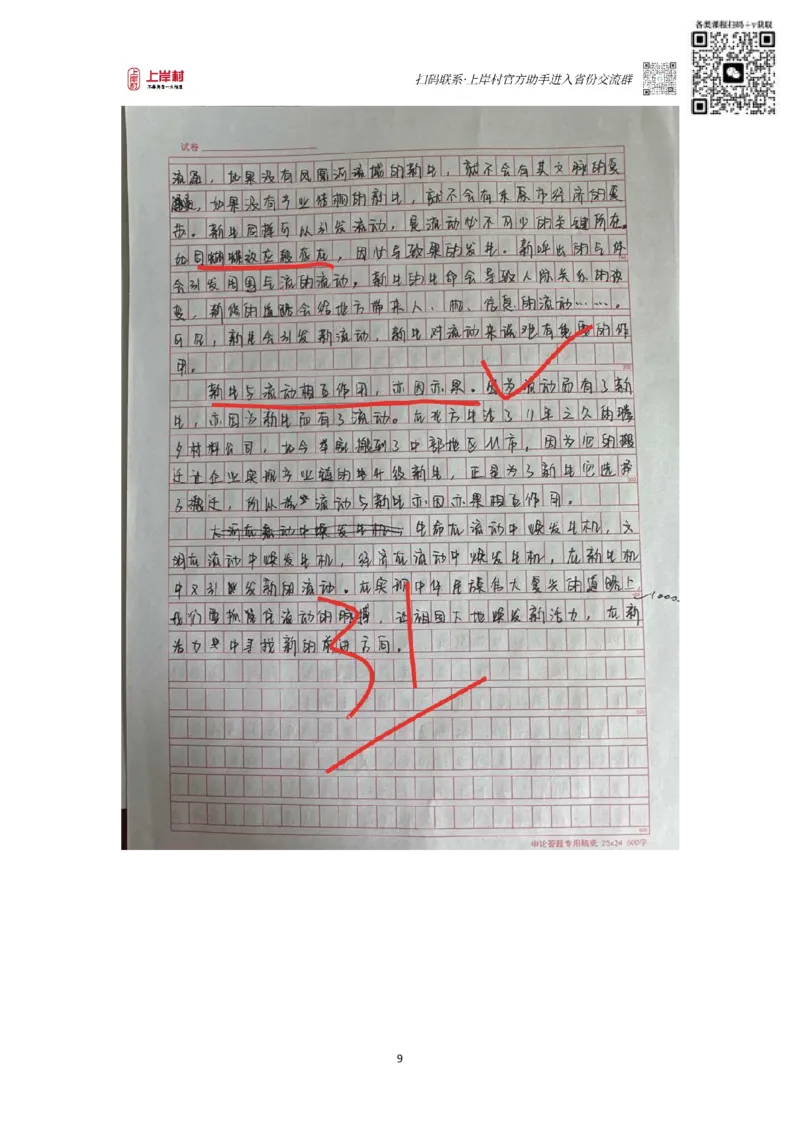 各类课程扫码+v获取
上岸村
扫码联系·上岸村官方助手进入省份交流群
试卷
流淌，如果没有凤凰河流域的新生，就不会有其文脉的复
，如果没有产业结构的新生，就不会有东原市经济的复
苏。新生同样可以引发流动，是流动必不可少的关键所在。
如同蝴蝶效应般存在，因必导致果的发生。新呼出的气体
会引发周围气流的流动，新生的生命会导致人际关系的改
变，新修的道路会给地方带来人、物、信息的流动……。
可见，新生会引发新流动，新生对流动来说难有重要的作
用。
新生与流动相互作用，亦因亦果。因为流动而有了新
生，亦因为新生而有了流动。在北方生活了11年之久的
乡材料公司，如今举家搬到了中部地区M市，因为它的搬
迁让企业实现产业链的生升级新生，正是为了新生它选择
了搬迁，所以流动与新生亦因亦果相互作用。
生命在流动中焕发生机，文
明在流动中焕发生机，经济在流动中焕发生机，在新生机
中又引发新的流动。在实现中华民族伟大复兴的道路上
我们要抓住流动的脉搏，让祖国大地焕发新活力，在新
活力中寻找新的前进方向。
1000
31
申论答题专用稿纸 25x24 600字
9